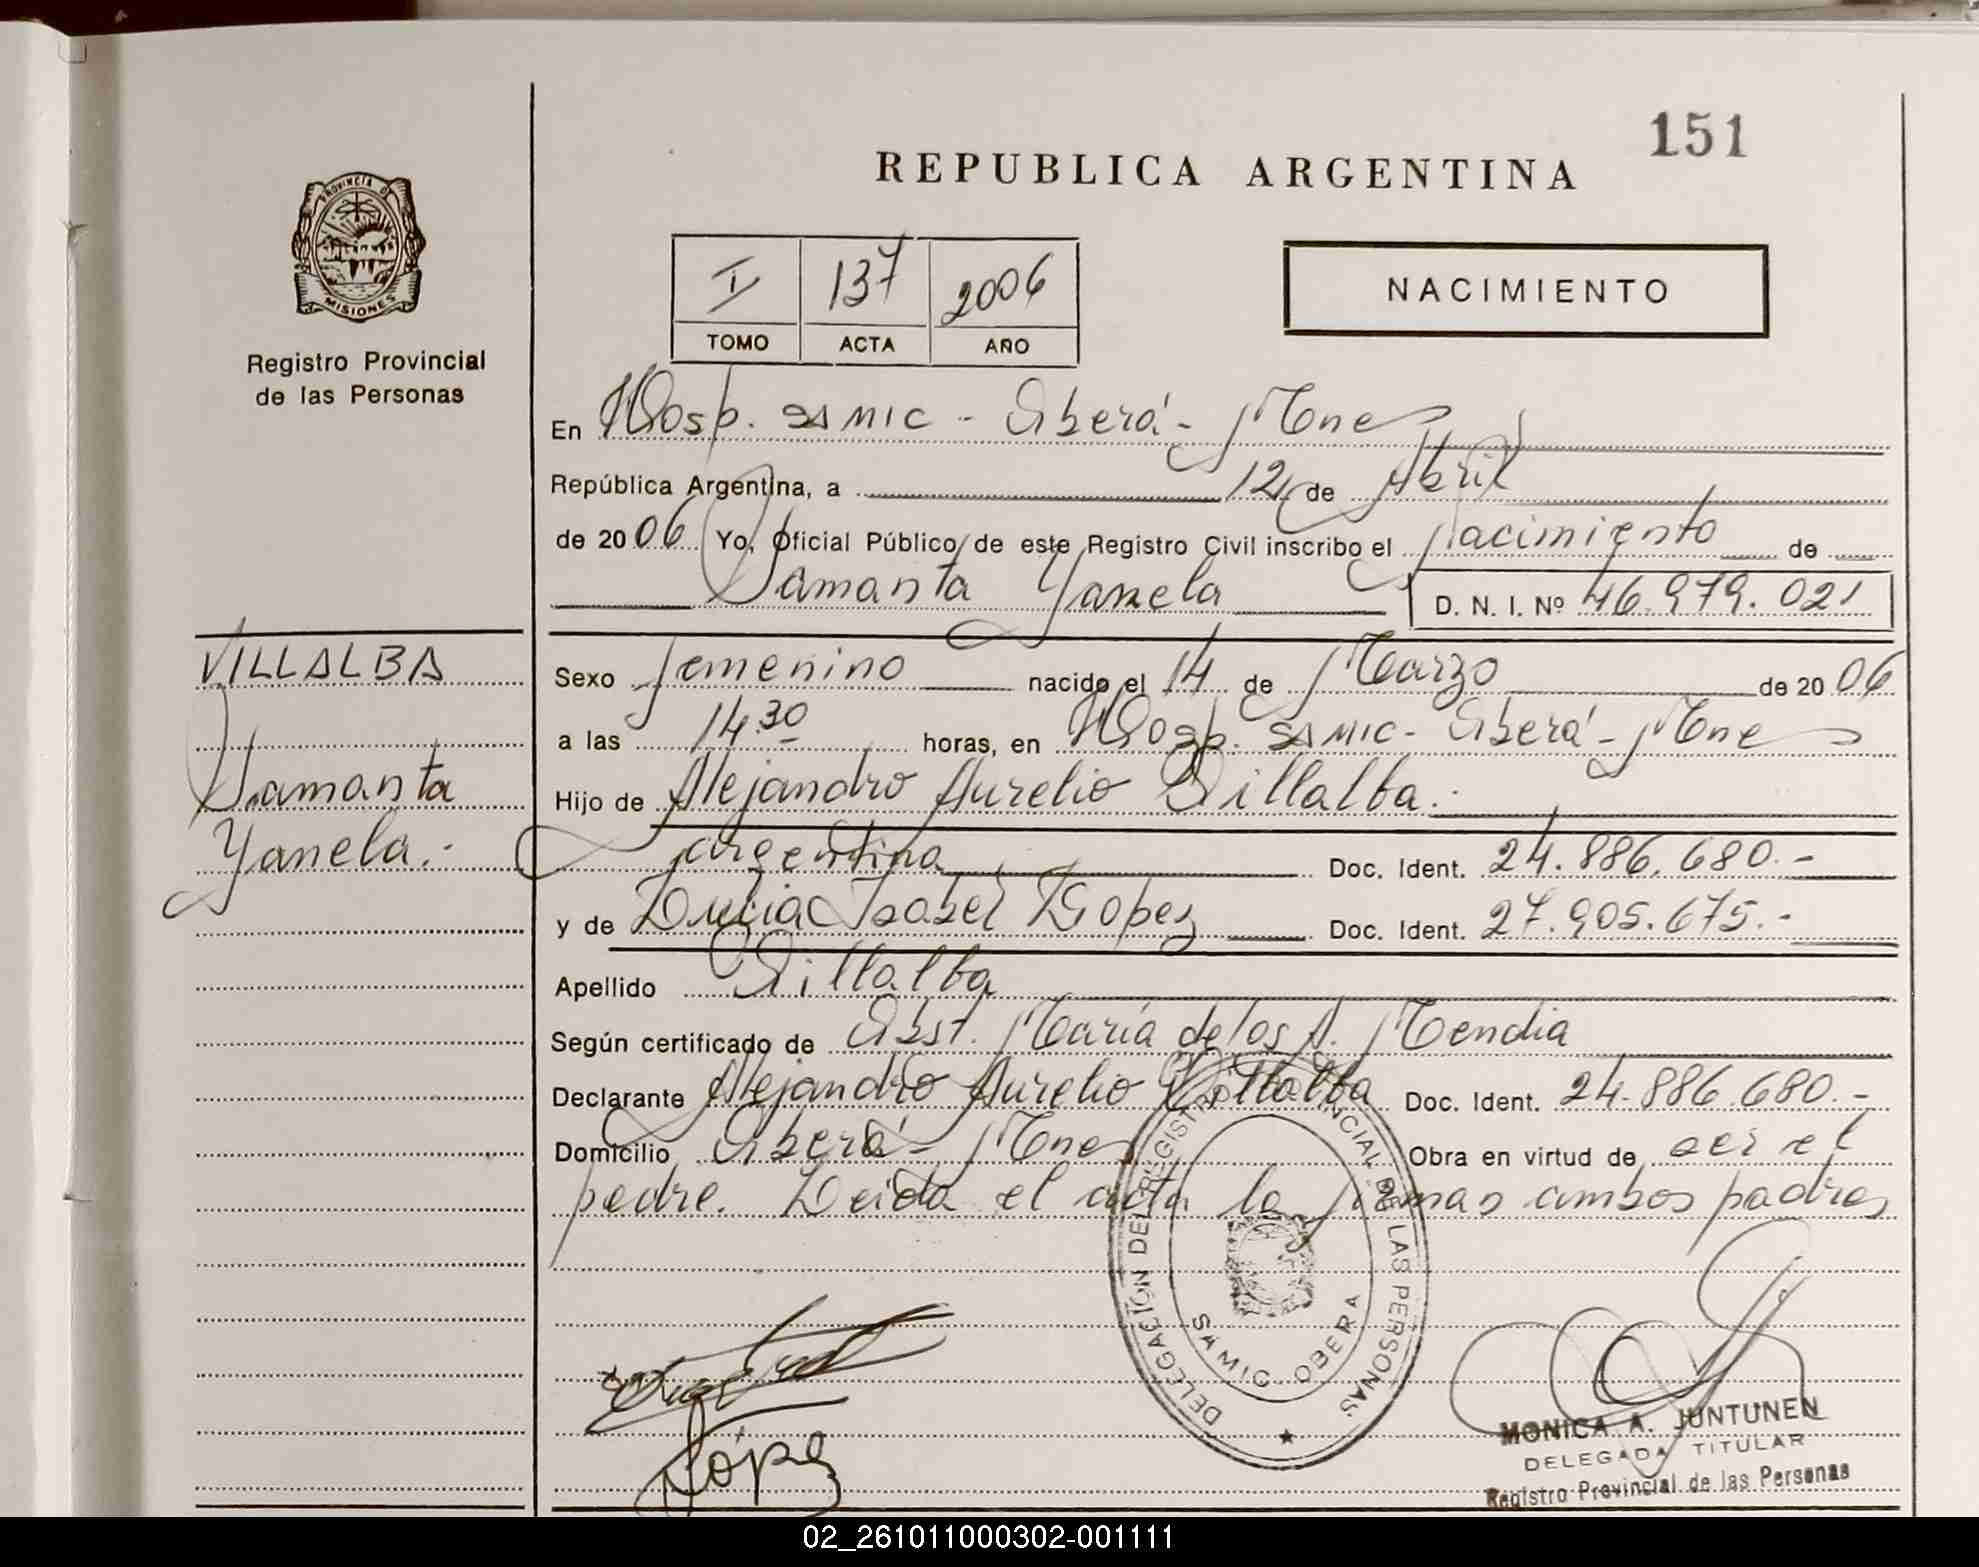 151
REPUBLICA ARGENTINA
PROVINCIA D
MISIONES
Registro Provincial
de las Personas
I 137 2006
TOMO ACTA AÑO
NACIMIENTO
En Hosp. SAMIC - Oberá - Mnes
República Argentina, a 12 de Abril
de 2006 Yo, Oficial Público de este Registro Civil inscribo el Nacimiento de
Samanta Yanela D. N. I. Nº 46.979.021
VILLALBA
Samanta
Yanela.-
Sexo femenino nacido el 14 de Marzo de 2006
a las 14.30 horas, en Hosp. SAMIC - Oberá - Mnes
Hijo de Alejandro Aurelio Villalba.-
argentina Doc. Ident. 24.886.680.-
y de Isabel Lopez Doc. Ident. 27.905.675.-
Apellido Villalba
Según certificado de Obst. María de los A. Mendia
Declarante Alejandro Aurelio Villalba Doc. Ident. 24.886.680.-
Domicilio Oberá - Mnes Obra en virtud de ser el
padre. Leida el acta la firman ambos padres
DELEGACIÓN DEL REGISTRO PROVINCIAL DE LAS PERSONAS
SAMIC OBERA
López
MONICA A. JUNTUNEN
DELEGADA TITULAR
Registro Provincial de las Personas
02_261011000302-001111